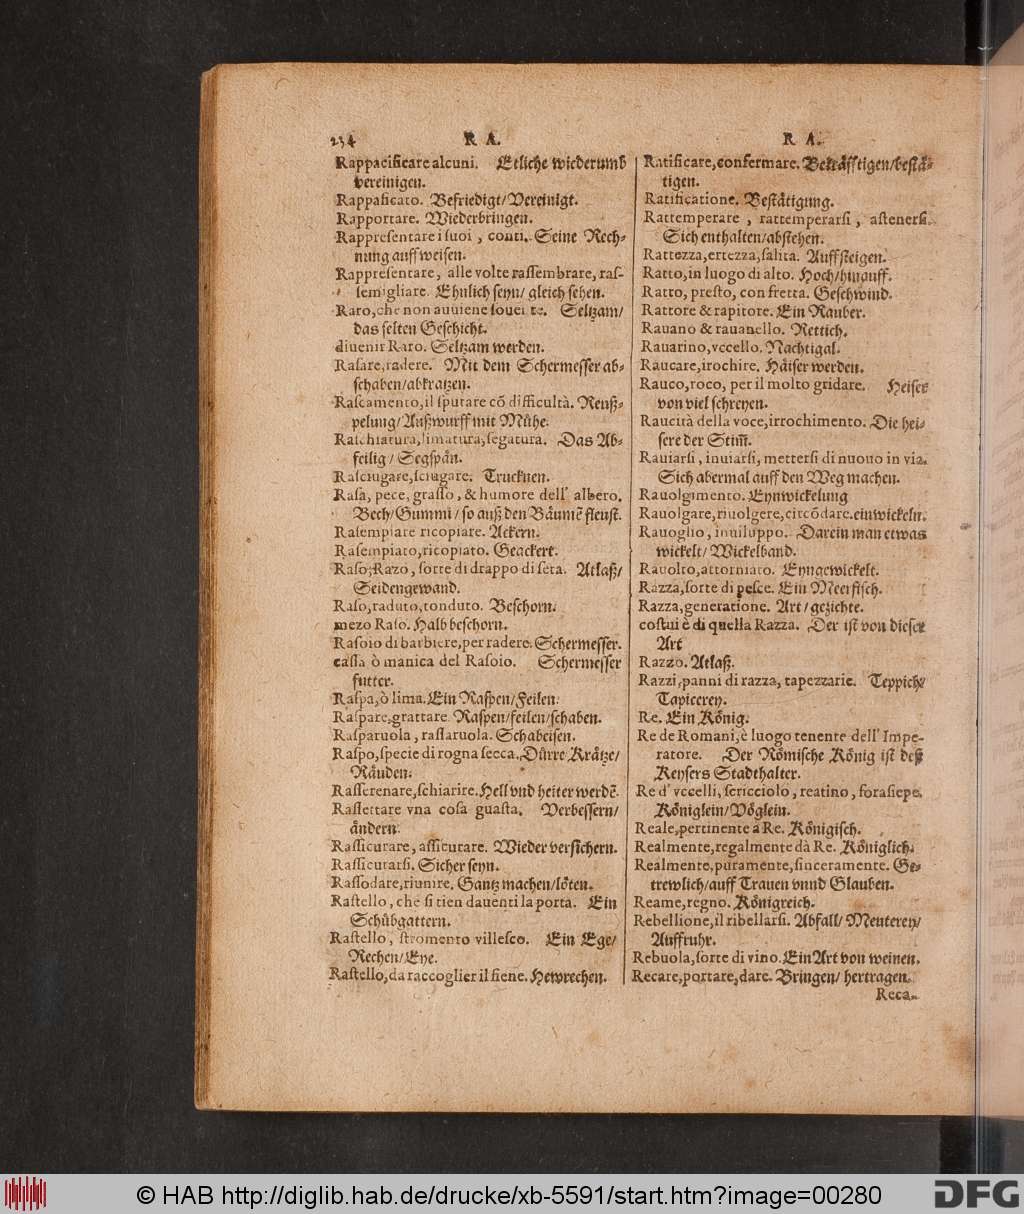 234 R A.
Rappacificare alcuni. Etliche wiederumb
vereinigen.
Rappaficato. Befriedigt/Vereinigt.
Rapportare. Wiederbringen.
Rappresentare i suoi, conti. Seine Rech-
nung auffweisen.
Rappresentare, alle volte rassembrare, ras-
semigliare. Ehnlich seyn/ gleich sehen.
Raro, che non auuiene souei te. Seltzam/
das selten Geschicht.
diuenir Raro. Seltzam werden.
Rasare, radere. Mit dem Schermesser ab-
schaben/abkratzen.
Rascamento, il sputare cō difficultà. Reuß-
pelung/Außwurff mit Mühe.
Raschiatura, limatura, segatura. Das Ab-
feilig/ Segspån.
Rasciugare, sciugare. Trucknen.
Rasa, pece, grasso, & humore dell' albero.
Bech/Gummi/ so auß den Båumē fleust.
Rasempiare ricopiare. Ackern.
Rasempiato, ricopiato. Geackert.
Raso, Razo, sorte di drappo di seta. Atlaß/
Seidengewand.
Raso, raduto, tonduto. Beschorn.
mezo Raso. Halb beschorn.
Rasoio di barbiere, per radere. Schermesser.
cassa ò manica del Rasoio. Schermesser
futter.
Raspa, ò lima. Ein Raspen/Feilen.
Raspare, grattare. Raspen/feilen/schaben.
Rasparuola, rassaruola. Schabeisen.
Raspo, specie di rogna secca. Dürre Kråtze/
Råuden.
Rasserenare, schiarire. Hell vnd heiter werdē.
Rassettare vna cosa guasta. Verbessern/
åndern.
Rassicurare, assicurare. Wieder versichern.
Rassicurarsi. Sicher seyn.
Rassodare, riunire. Gantz machen/löten.
Rastello, che si tien dauenti la porta. Ein
Schůbgattern.
Rastello, stromento villesco. Ein Ege/
Rechen/Eye.
Rastello, da raccoglier il fiene. Hewrechen.
R A.
Ratificare, confermare. Bekråfftigen/bestå-
tigen.
Ratificatione. Beståtigung.
Rattemperare, rattemperarsi, astenersi.
Sich enthalten/abstehen.
Rattezza, ertezza, salita. Auffsteigen.
Ratto, in luogo di alto. Hoch/hinauff.
Ratto, presto, con fretta. Geschwind.
Rattore & rapitore. Ein Rauber.
Rauano & rauanello. Rettich.
Rauarino, vccello. Nachtigal.
Raucare, irochire. Håiser werden.
Rauco, roco, per il molto gridare. Heiser
von viel schreyen.
Raucità della voce, irrochimento. Die hei-
sere der Stim̄.
Rauiarsi, inuiarsi, mettersi di nuouo in via.
Sich abermal auff den Weg machen.
Rauolgimento. Eynwickelung
Rauolgare, riuolgere, circōdare. einwickeln.
Rauoglio, inuiluppo. Darein man etwas
wickelt/ Wickelband.
Rauolto, attorniato. Eyngewickelt.
Razza, sorte di pesce. Ein Meerfisch.
Razza, generatione. Art/ gezichte.
costui è di quella Razza. Der ist von dieser
Art
Razzo. Atlaß.
Razzi, panni di razza, tapezzarie. Teppich/
Tapicerey.
Re. Ein König.
Re de Romani, è luogo tenente dell' Impe-
ratore. Der Römische König ist deß
Keysers Stadthalter.
Re d' vccelli, scricciolo, reatino, forasiepe.
Königlein/Vöglein.
Reale, pertinente a Re. Königisch.
Realmente, regalmente dà Re. Königlich.
Realmente, puramente, sinceramente. Ge-
trewlich/auff Trauen vnnd Glauben.
Reame, regno. Königreich.
Rebellione, il ribellarsi. Abfall/ Meuterey/
Auffruhr.
Rebuola, sorte di vino. Ein Art von weinen.
Recare, portare, dare. Bringen/ hertragen.
Reca-
© HAB http://diglib.hab.de/drucke/xb-5591/start.htm?image=00280
DFG